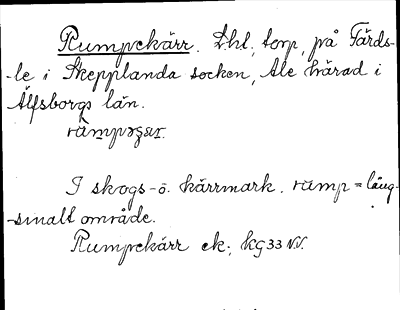 Rumpekärr. Lhl, torp, på Färds-
-le i Skepplanda socken, Ale härad i
Älfsborgs län.
I skogs- o. kärrmark. rump = lång-
-smalt område.
Rumpekärr ek; KG 33 NV.